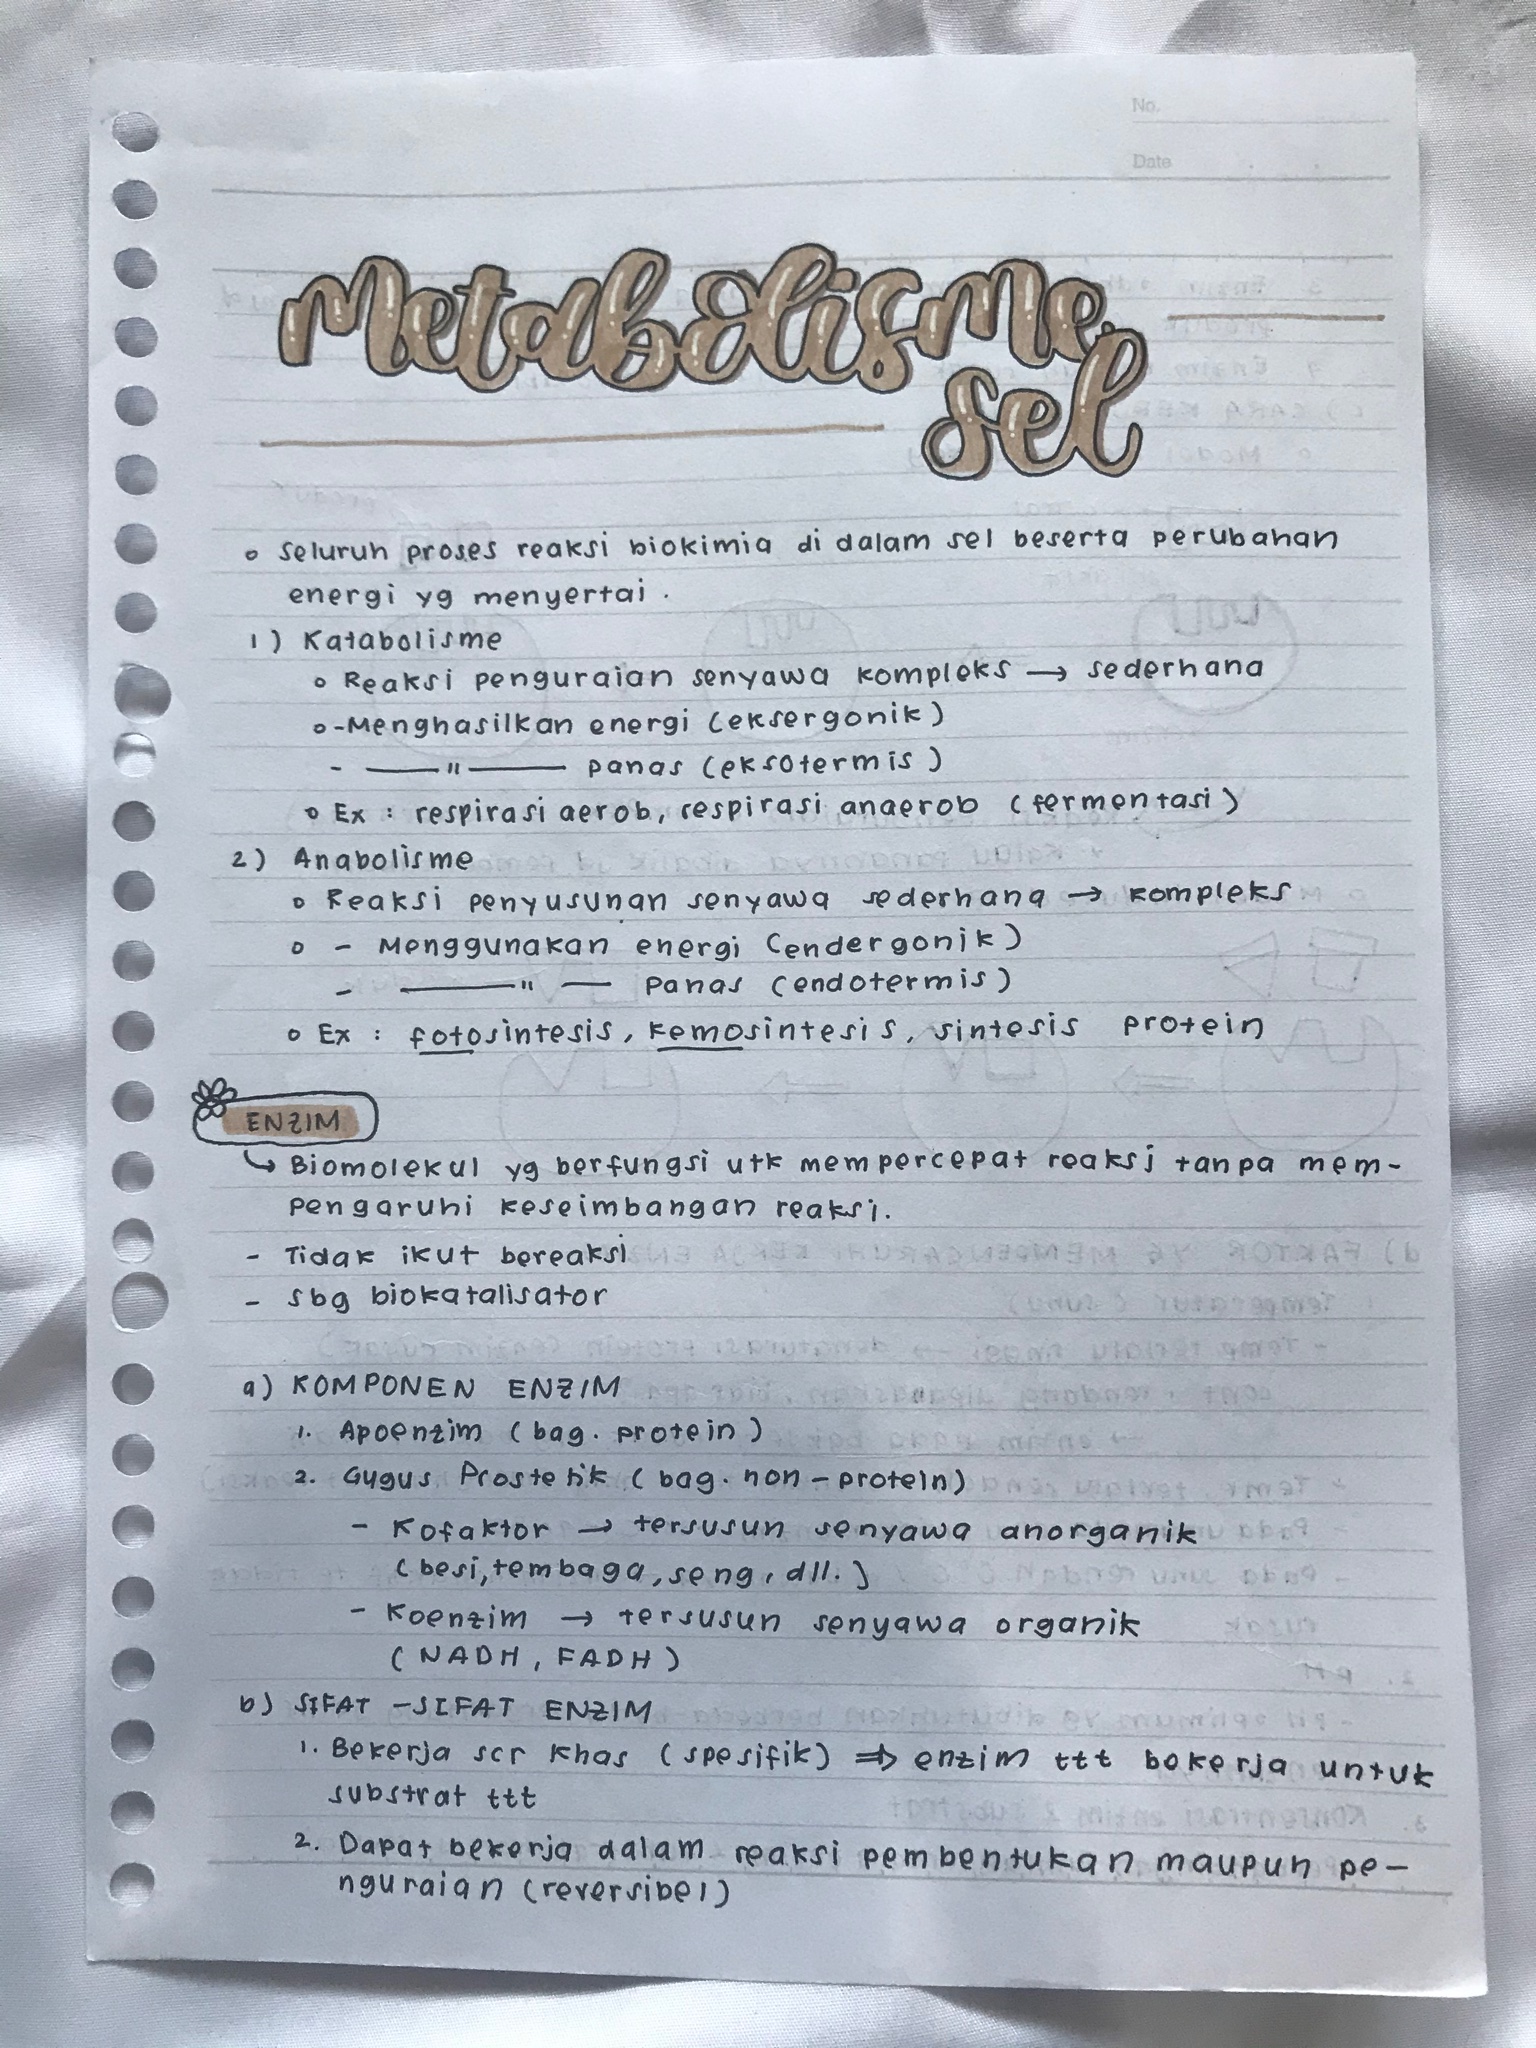 No.
Date
Metabolisme
sel
o seluruh proses reaksi biokimia di dalam sel beserta perubahan
energi yg menyertai.
1) Katabolisme
o Reaksi penguraian senyawa kompleks → sederhana
o -Menghasilkan energi (eksergonik)
- —— " —— panas (eksotermis)
o Ex : respirasi aerob, respirasi anaerob (fermentasi)
2) Anabolisme
o Reaksi penyusunan senyawa sederhana → kompleks
o - Menggunakan energi (endergonik)
- —— " — panas (endotermis)
o Ex : fotosintesis, kemosintesis, sintesis protein
ENZIM
↳ Biomolekul yg berfungsi utk mempercepat reaksi tanpa mem-
pengaruhi keseimbangan reaksi.
- Tidak ikut bereaksi
- sbg biokatalisator
a) KOMPONEN ENZIM
1. Apoenzim (bag. protein)
2. Gugus Prostetik (bag. non-protein)
- Kofaktor → tersusun senyawa anorganik
(besi, tembaga, seng, dll.)
- Koenzim → tersusun senyawa organik
(NADH, FADH)
b) SIFAT-SIFAT ENZIM
1. Bekerja scr khas (spesifik) ⇒ enzim ttt bekerja untuk
substrat ttt
2. Dapat bekerja dalam reaksi pembentukan maupun pe-
nguraian (reversibel)